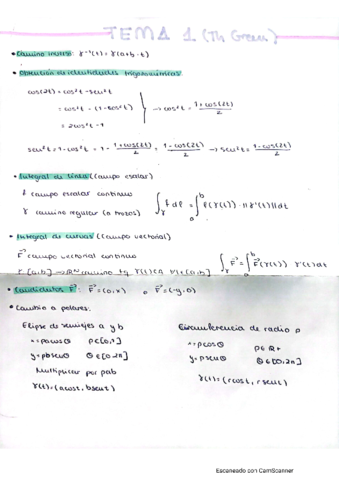 TEMA 1 (Th Green)
• Camino inverso: γ⁻¹(t) = γ(a+b-t)
• Obtención de identidades trigonométricas
cos(2t) = cos²t - sen²t
= cos²t - (1-cos²t)
= 2cos²t - 1
→ cos²t = 1+cos(2t)/2
sen²t = 1-cos²t = 1 - 1+cos(2t)/2 = 1-cos(2t)/2 → sen²t = 1-cos(2t)/2
• Integral de línea (campo escalar)
f campo escalar continuo
γ camino regular (a trozos)
∫γ f dl = ∫ₐᵇ f(γ(t)) · ||γ'(t)|| dt
• Integral de curvas (campo vectorial)
F⃗ campo vectorial continuo
γ [a,b] → ℝᴺ camino tq γ(t) ∈ A ∀t ∈ [a,b]
∫γ F⃗ = ∫ₐᵇ F⃗(γ(t)) γ'(t) dt
• Candidatos F⃗: F⃗ = (0,x) o F⃗ = (-y,0)
• Cambio a polares:
Elipse de semiejes a y b
x = ρa cosθ ρ∈[0,1]
y = ρb senθ θ∈[0,2π]
Multiplicar por ρab
γ(t) = (a cost, b sent)
Circunferencia de radio ρ
x = ρcosθ ρ∈ℝ+
y = ρsenθ θ∈[0,2π]
γ(t) = (r cost, r sent)
Escaneado con CamScanner